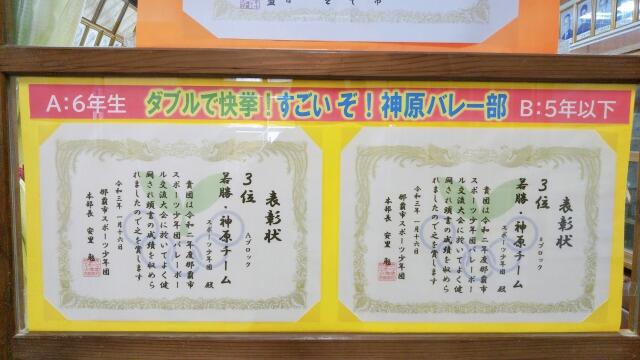 A:6年生 ダブルで快挙!すごいぞ!神原バレー部 B:5年以下
表彰状
Aブロック
3位
若勝・神原チーム
スポーツ少年団 殿
貴団は令和二年度那覇市
スポーツ少年団バレーボー
ル交流大会に於いてよく健
闘され頭書の成績を収めら
れましたので之を賞します
令和三年 一月十六日
那覇市スポーツ少年団
本部長 安里 勉
表彰状
3位
若勝・神原チーム
スポーツ少年団 殿
貴団は令和二年度那覇市
スポーツ少年団バレーボー
ル交流大会に於いてよく健
闘され頭書の成績を収めら
れましたので之を賞します
令和三年 一月十六日
那覇市スポーツ少年団
本部長 安里 勉